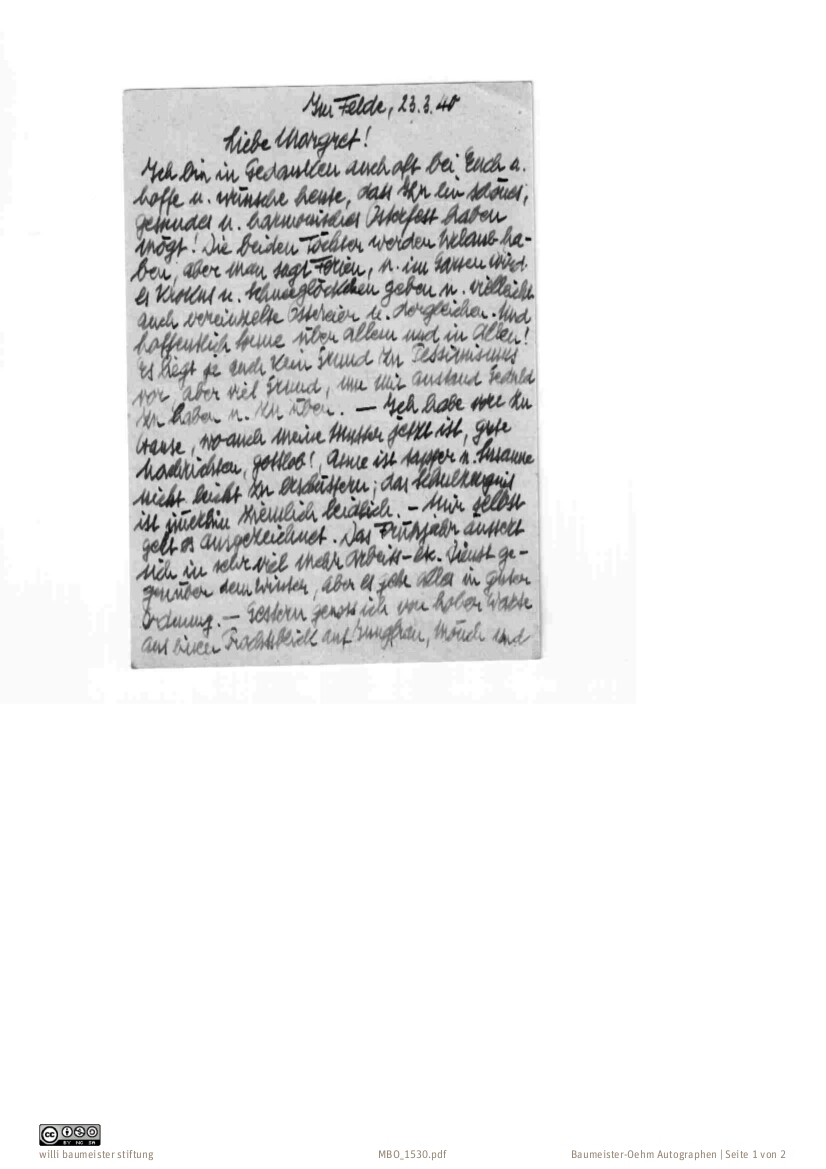 Im Felde, 23.3.40
Liebe Margret!
Ich bin in Gedanken auch oft bei Euch u.
hoffe u. wünsche heute, dass Ihr ein schönes,
gesundes u. harmonisches Osterfest haben
mögt! Die beiden Töchter werden Urlaub ha-
ben, aber man sagt Ferien, u. im Garten wird
es Krokus u. Schneeglöckchen geben u. vielleicht
auch vereinzelte Ostereier u. dergleichen. Und
hoffentlich Sonne über allem und in Allen!
Es liegt ja auch kein Grund zu Pessimismus
vor, aber viel Grund, um mit Geduld
zu haben u. zu üben. — Ich habe von zu
Hause, wo auch meine Mutter jetzt ist, gute
Nachrichten, gottlob! Anne ist tapfer u. Susanne
nicht leicht zu erschüttern; das Schulzeugnis
ist immerhin ziemlich leidlich. – Mir selbst
geht es ausgezeichnet. Das Frühjahr äussert
sich in sehr viel mehr Arbeit etc. Dienst ge-
genüber dem Winter, aber es geht alles in guter
Ordnung. — Gestern genoss ich von hoher Warte
aus einen Prachtsblick auf Jungfrau, Mönch und
CC BY NC SA
willi baumeister stiftung
MBO_1530.pdf
Baumeister-Oehm Autographen | Seite 1 von 2